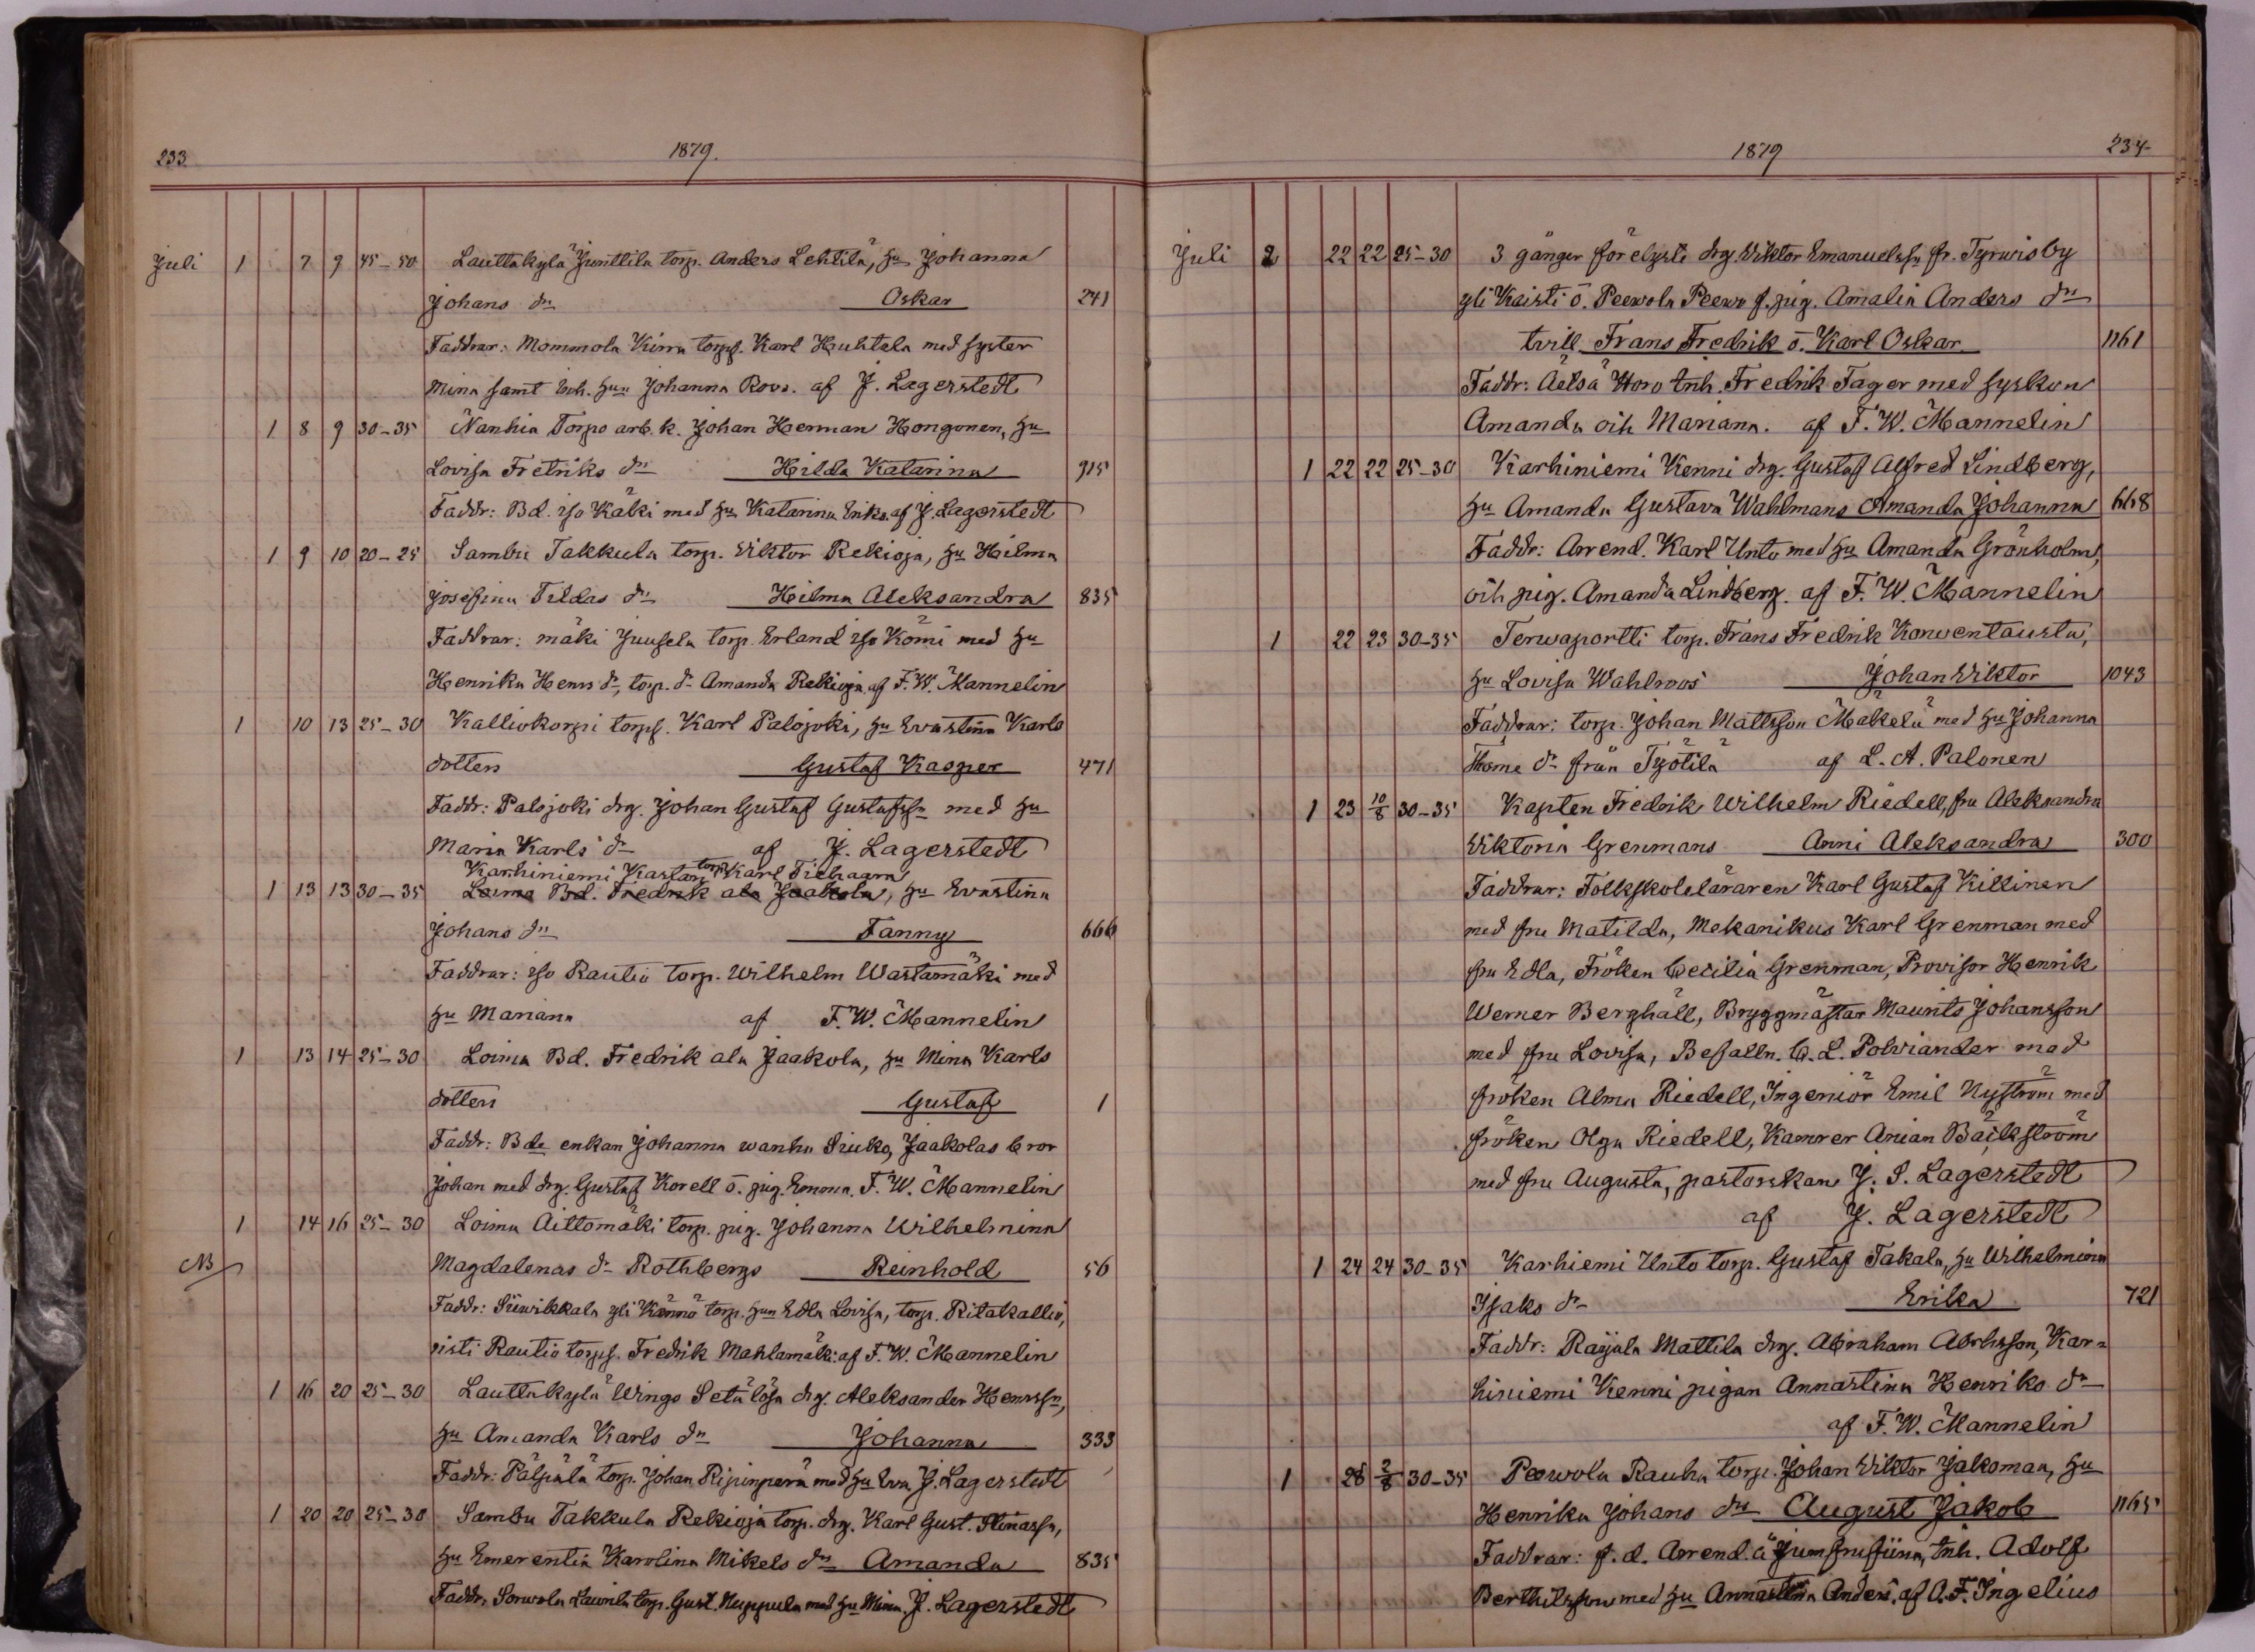 233.
1879.
Juli 1 7 9 45-50 Lauttakylä Junttila torp. Anders Lehtilä, hu Johanna
Johans dr Oskar 241
Faddrar: Mommola Kirra torps. Karl Huhtala med syster
Mina samt hu Johanna Rovs. af J. Lagerstedt
1 8 9 30-35 Nanhia Torpo arb.k. Johan Herman Hongonen, hu
Lovisa Fretriks dr Hilda Katarina 915
Faddr: Bd. iso Käki med hu Katarina Eriks. af J. Lagerstedt
1 9 10 20-25 Sambu Takkula torp. Viktor Rekioja, hu Hilma
Josefina Tildas dr Hilma Aleksandra 835
Faddrar: mäki Juusela torp. Erland iso Komi med hu
Henrika Henrs dr, torp. dr Amanda Rekioja, af F. W. Mannelin
1 10 13 25-30 Kalliokorpi torps. Karl Palojoki, hu Evastina Karls
dotters Gustaf Kasper 471
Faddr: Palojoki drg. Johan Gustaf Gustafssn med hu
Maria Karls dr af J. Lagerstedt
Karhiniemi Kastari torp. Karl Tiehaara
1 13 13 30-35 Loima Bd. Fredrik ala Jaakola, hu Evastina
Johans dr Fanny 666
Faddrar: iso Rautio torp. Wilhelm Wastamäki med
hu Mariana af F. W. Mannelin
1 13 14 25-30 Loima Bd. Fredrik ala Jaakola, hu Mina Karls
dotters Gustaf 1
Faddr: Bde enkan Johanna wanha Siuko, Jaakolas bror
Johan med drg. Gustaf Korell o. pig. Emma. F. W. Mannelin
1 14 16 25-30 Loima Aittomäki torp. pig. Johanna Wilhelmina
NB Magdalenas dr Rothbergs Reinhold 56
Faddr: Siiwikkala yli Kännö torp. hu Edla Lovisa, torp. Ritakallio,
risti Rautio torps. Fredrik Mahlamäki af F. W. Mannelin
1 16 20 25-30 Lauttakylä Wingo Setälösa drg. Aleksander Henrssn,
hu Amanda Karls dr Johanna 333
Faddr: Pälpälä torp. Johan Ripinperä med hu Eva J. Lagerstedt
1 20 20 25-30 Sambu Takkula Rekioja torp. drg. Karl Gust.
hu Emerentia Karolina Mikels dr Amanda 835
Faddr. Sorwola Laurila torp. Gust. Nuppula med hu Mina. J. Lagerstedt
1879
234
Juli 2 22 22 25-30 3 gånger förelyste drg. Viktor Emanuelssn fr. Tyrwis by
yli Kaisti o. Peewola Peewo f. pig. Amalia Anders dr
tvill. Frans Fredrik o. Karl Oskar 1161
Faddr: Äetsä Horo tnh. Fredrik Fager med syskon
Amanda och Mariana. af F. W. Mannelin
1 22 22 25-30 Karhiniemi Kenni drg. Gustaf Alfred Lindberg,
hu Amanda Gustava Wahlmans Amanda Johanna 668
Faddr: Arrend. Karl Unto med hu Amanda Grönholm,
och pig. Amanda Lindberg. af F. W. Mannelin
1 22 23 30-35 Terwaportti torp. Frans Fredrik Konwentausta,
hu Lovisa Wahlroos Johan Viktor 1043
Faddrar: torp. Johan Mattsson Mäkelä med hu Johanna
Thome dr från Työtilä af L. A. Palonen
1 23 10/8 30-35 Kapten Fredrik Wilhelm Riedell, fru Aleksandra
Viktoria Grenmans Anni Aleksandra 300
Faddrar: Folkskoleläraren Karl Gustaf Killinen
med fru Matilda, Mekanikus Karl Grenman med
fru Edla, Fröken Cecilia Grenman, Provisor Henrik
Werner Berghäll, Bryggmästar Maurits Johansson
med fru Lovisa, Befalln. C. L. Polviander med
fröken Alma Riedell, Ingeniör Emil Nyström med
fröken Olga Riedell, Kamrer Anian Bäckström
med fru Augusta, pastorskan J. S. Lagerstedt
af J. Lagerstedt
1 24 24 30-35 Karhiemi Unto torp. Gustaf Takala, hu Wilhelmina
Isaks dr Erika 721
Faddr: Raijala Mattila drg. Abraham Abrhsson, Kar=
hiniemi Kenni pigan Annastina Henriks dr
af F. W. Mannelin
1 28 2/8 30-35 Peewola Rauha torp. Johan Viktor Jakoman, hu
Henrika Johans drs August Jakob 1165
Faddrar: f.d. Arrend. å Jumfrufiina, tnh. Adolf
Berthilsson med hu Annastina Anders. af A. F. Ingelius